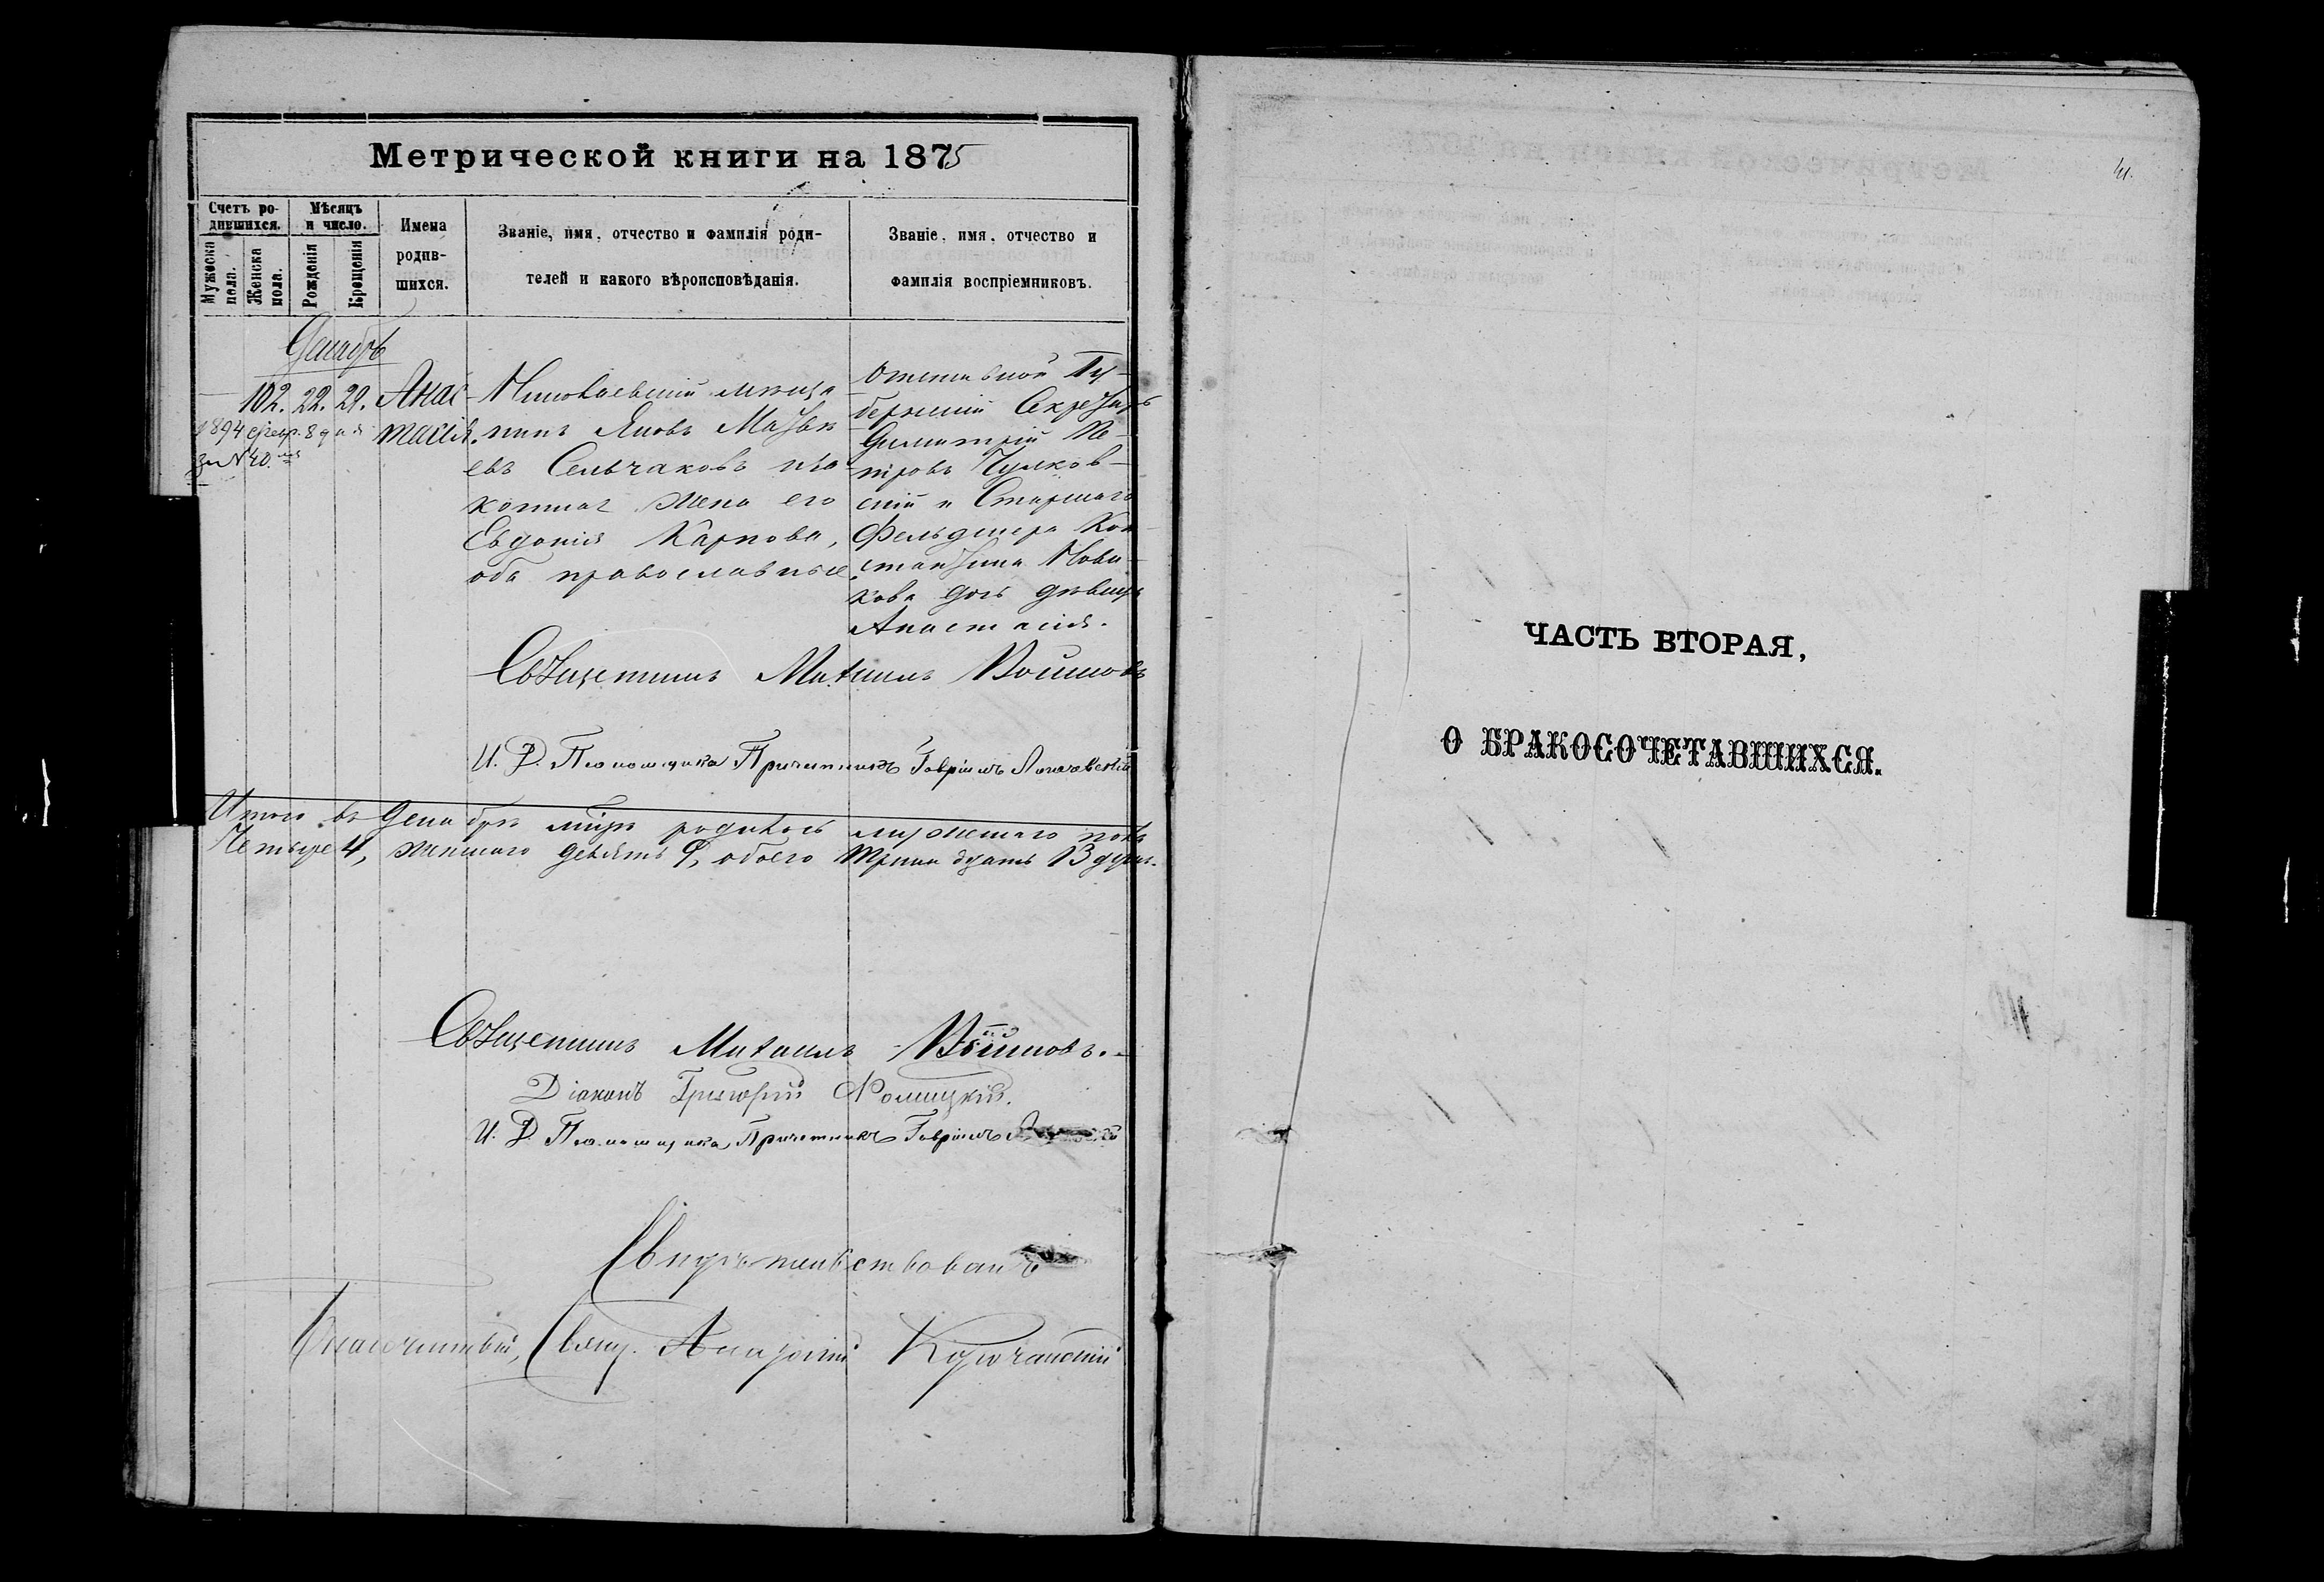 Метрической книги на 1875
Счетъ ро-
дившихся.
Мѣсяцъ
и число.
Мужеска
пола.
Женска
пола.
Рожденія
Крещенія
Имена
родив-
шихся.
Званіе, имя, отчество и фамилія роди-
телей и какого вѣроисповѣданія.
Званіе, имя, отчество и
фамилія воспріемниковъ.
Декабрь
102. 22. 29. Анас-
тасія.
1894 февр. 8 дня
за № 40.
Николаевскій мѣща-
нинъ Яковъ
евъ Сельчаковъ и за-
конная жена его
Евдокія Карпова,
оба православные.
Отставной Гу-
бернскій Секретарь
Димитрій Пе-
тровъ Чулков-
скій и Старшаго
Фельдшера Кон-
стантина Нови-
кова дочь дѣвица
Анастасія.
Священникъ Михаилъ Войновъ
И. Д. Помощника Причетникъ Гавріилъ
Итого въ Декабрѣ мцѣ родилось мужескаго пола
Четыре 4, женскаго девять 9, обоего тринадцать 13 душъ.
Священникъ Михаилъ Войновъ.
Діаконъ Григорій
И. Д. Помощника Причетникъ Гавріилъ
Свидѣтельствовалъ
Благочинный, Свящ.
41.
ЧАСТЬ ВТОРАЯ,
О БРАКОСОЧЕТАВШИХСЯ.